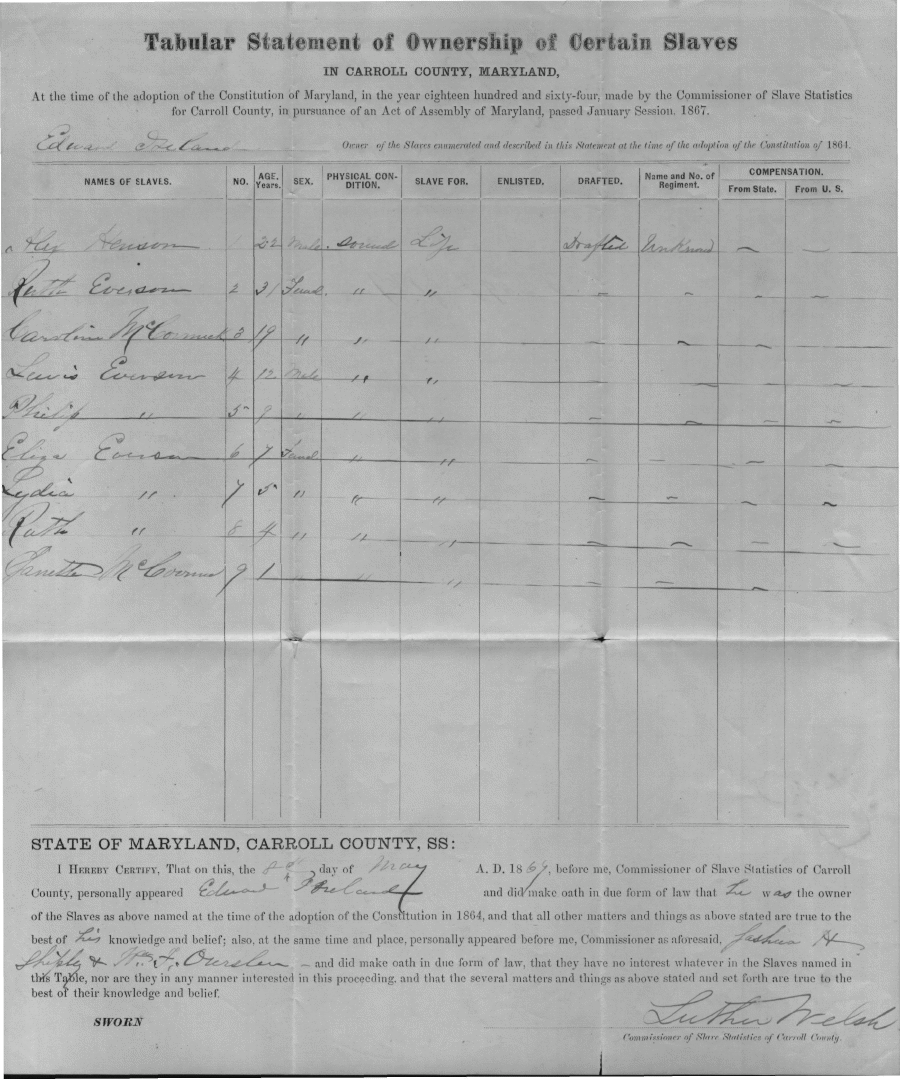 Tabular Statement of Ownership of Certain Slaves
IN CARROLL COUNTY, MARYLAND,
At the time of the adoption of the Constitution of Maryland, in the year eighteen hundred and sixty-four, made by the Commissioner of Slave Statistics
for Carroll County, in pursuance of an Act of Assembly of Maryland, passed January Session, 1867.
Edward Ireland Owner of the Slaves enumerated and described in this Statement at the time of the adoption of the Constitution of 1864.
NAMES OF SLAVES. NO. AGE. Years. SEX. PHYSICAL CONDITION. SLAVE FOR. ENLISTED. DRAFTED. Name and No. of Regiment. COMPENSATION. From State. From U. S.
Henson 1 22 Male sound Life Drafted Unknown – –
Ruth Everson 2 31 Femal. " " – – – –
Caroline McCormick 3 19 " " " – –
Lewis Everson 4 12 Male " " – – –
Philip " 5 9 " " " – – – –
Eliza Everson 6 7 Femal " " – – – –
Lydia " 7 5 " " " – – – –
Ruth " 8 4 " " " – – – –
McCormic 9 1 " " – – –
STATE OF MARYLAND, CARROLL COUNTY, SS:
I HEREBY CERTIFY, That on this, the day of May A. D. 1867, before me, Commissioner of Slave Statistics of Carroll
County, personally appeared Edward Ireland and did make oath in due form of law that he was the owner
of the Slaves as above named at the time of the adoption of the Constitution in 1864, and that all other matters and things as above stated are true to the
best of his knowledge and belief; also, at the same time and place, personally appeared before me, Commissioner as aforesaid, Joshua H
Shipley & Wm F. Oursler – and did make oath in due form of law, that they have no interest whatever in the Slaves named in
this Table, nor are they in any manner interested in this proceeding, and that the several matters and things as above stated and set forth are true to the
best of their knowledge and belief.
SWORN
Luther Welsh
Commissioner of Slave Statistics of Carroll County.